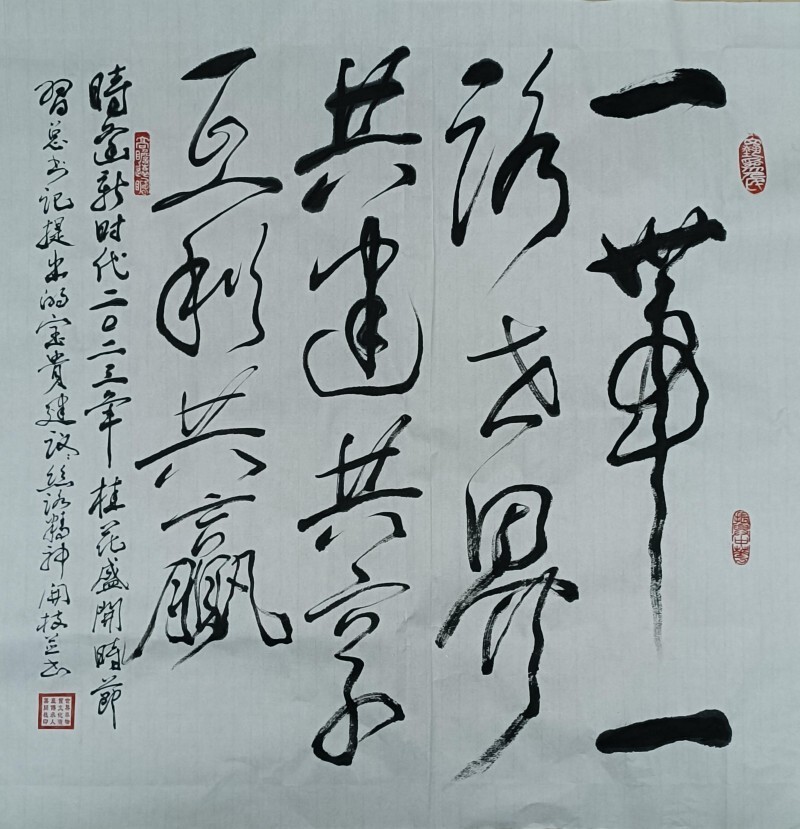 一帶一
路世界
共建共享
互利共赢
時逢新时代二〇二三年桂花盛開時節
習总书记提出的宝贵建议丝路精神開枝
高瞻遠矚
振興中華